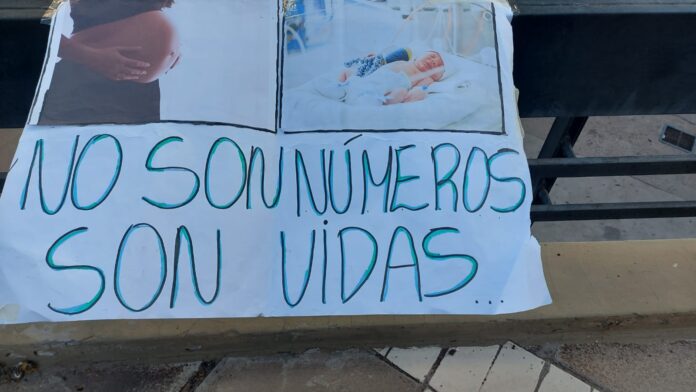 NO SON NÚMEROS
SON VIDAS...